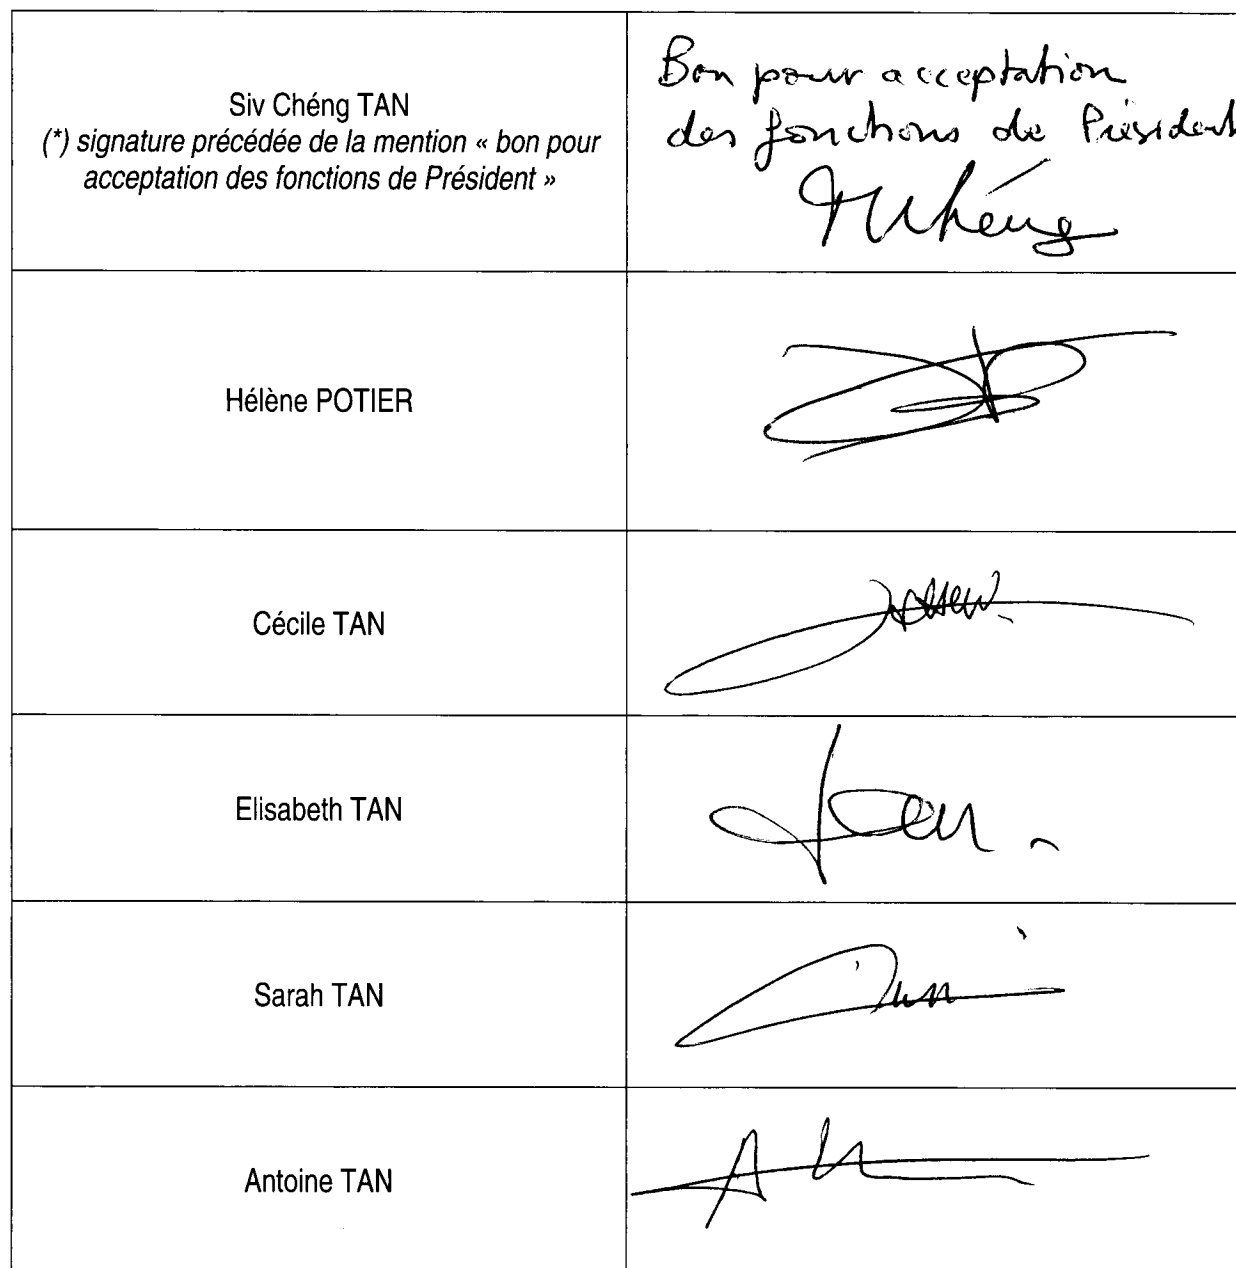 Siv Chéng TAN
(*) signature précédée de la mention « bon pour
acceptation des fonctions de Président »
Bon pour acceptation
des fonctions de Président
Hélène POTIER
Cécile TAN
Elisabeth TAN
Sarah TAN
Antoine TAN